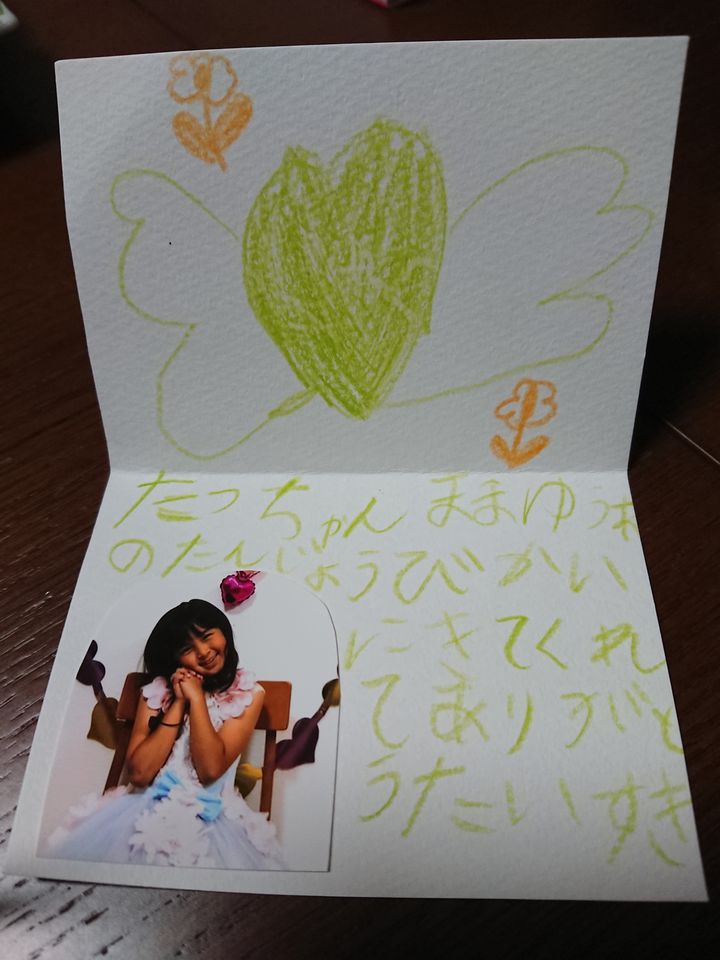 たっちゃん ままゆうあ
のたんじょうびかい
にきてくれ
てありがと
うたいすき